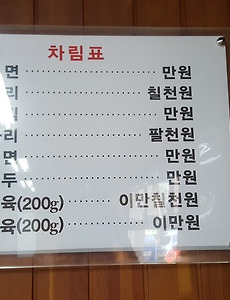 차림표
면 ······················ 만원
리 ·················· 칠천원
······················ 만원
리 ·················· 팔천원
면 ······················ 만원
두 ······················ 만원
육(200g) ········ 이만칠천원
육(200g) ··············· 이만원